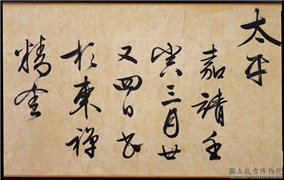 太平
嘉靖壬
寅三月廿
又四日書
於東禪
精舍
國立故宮博物院